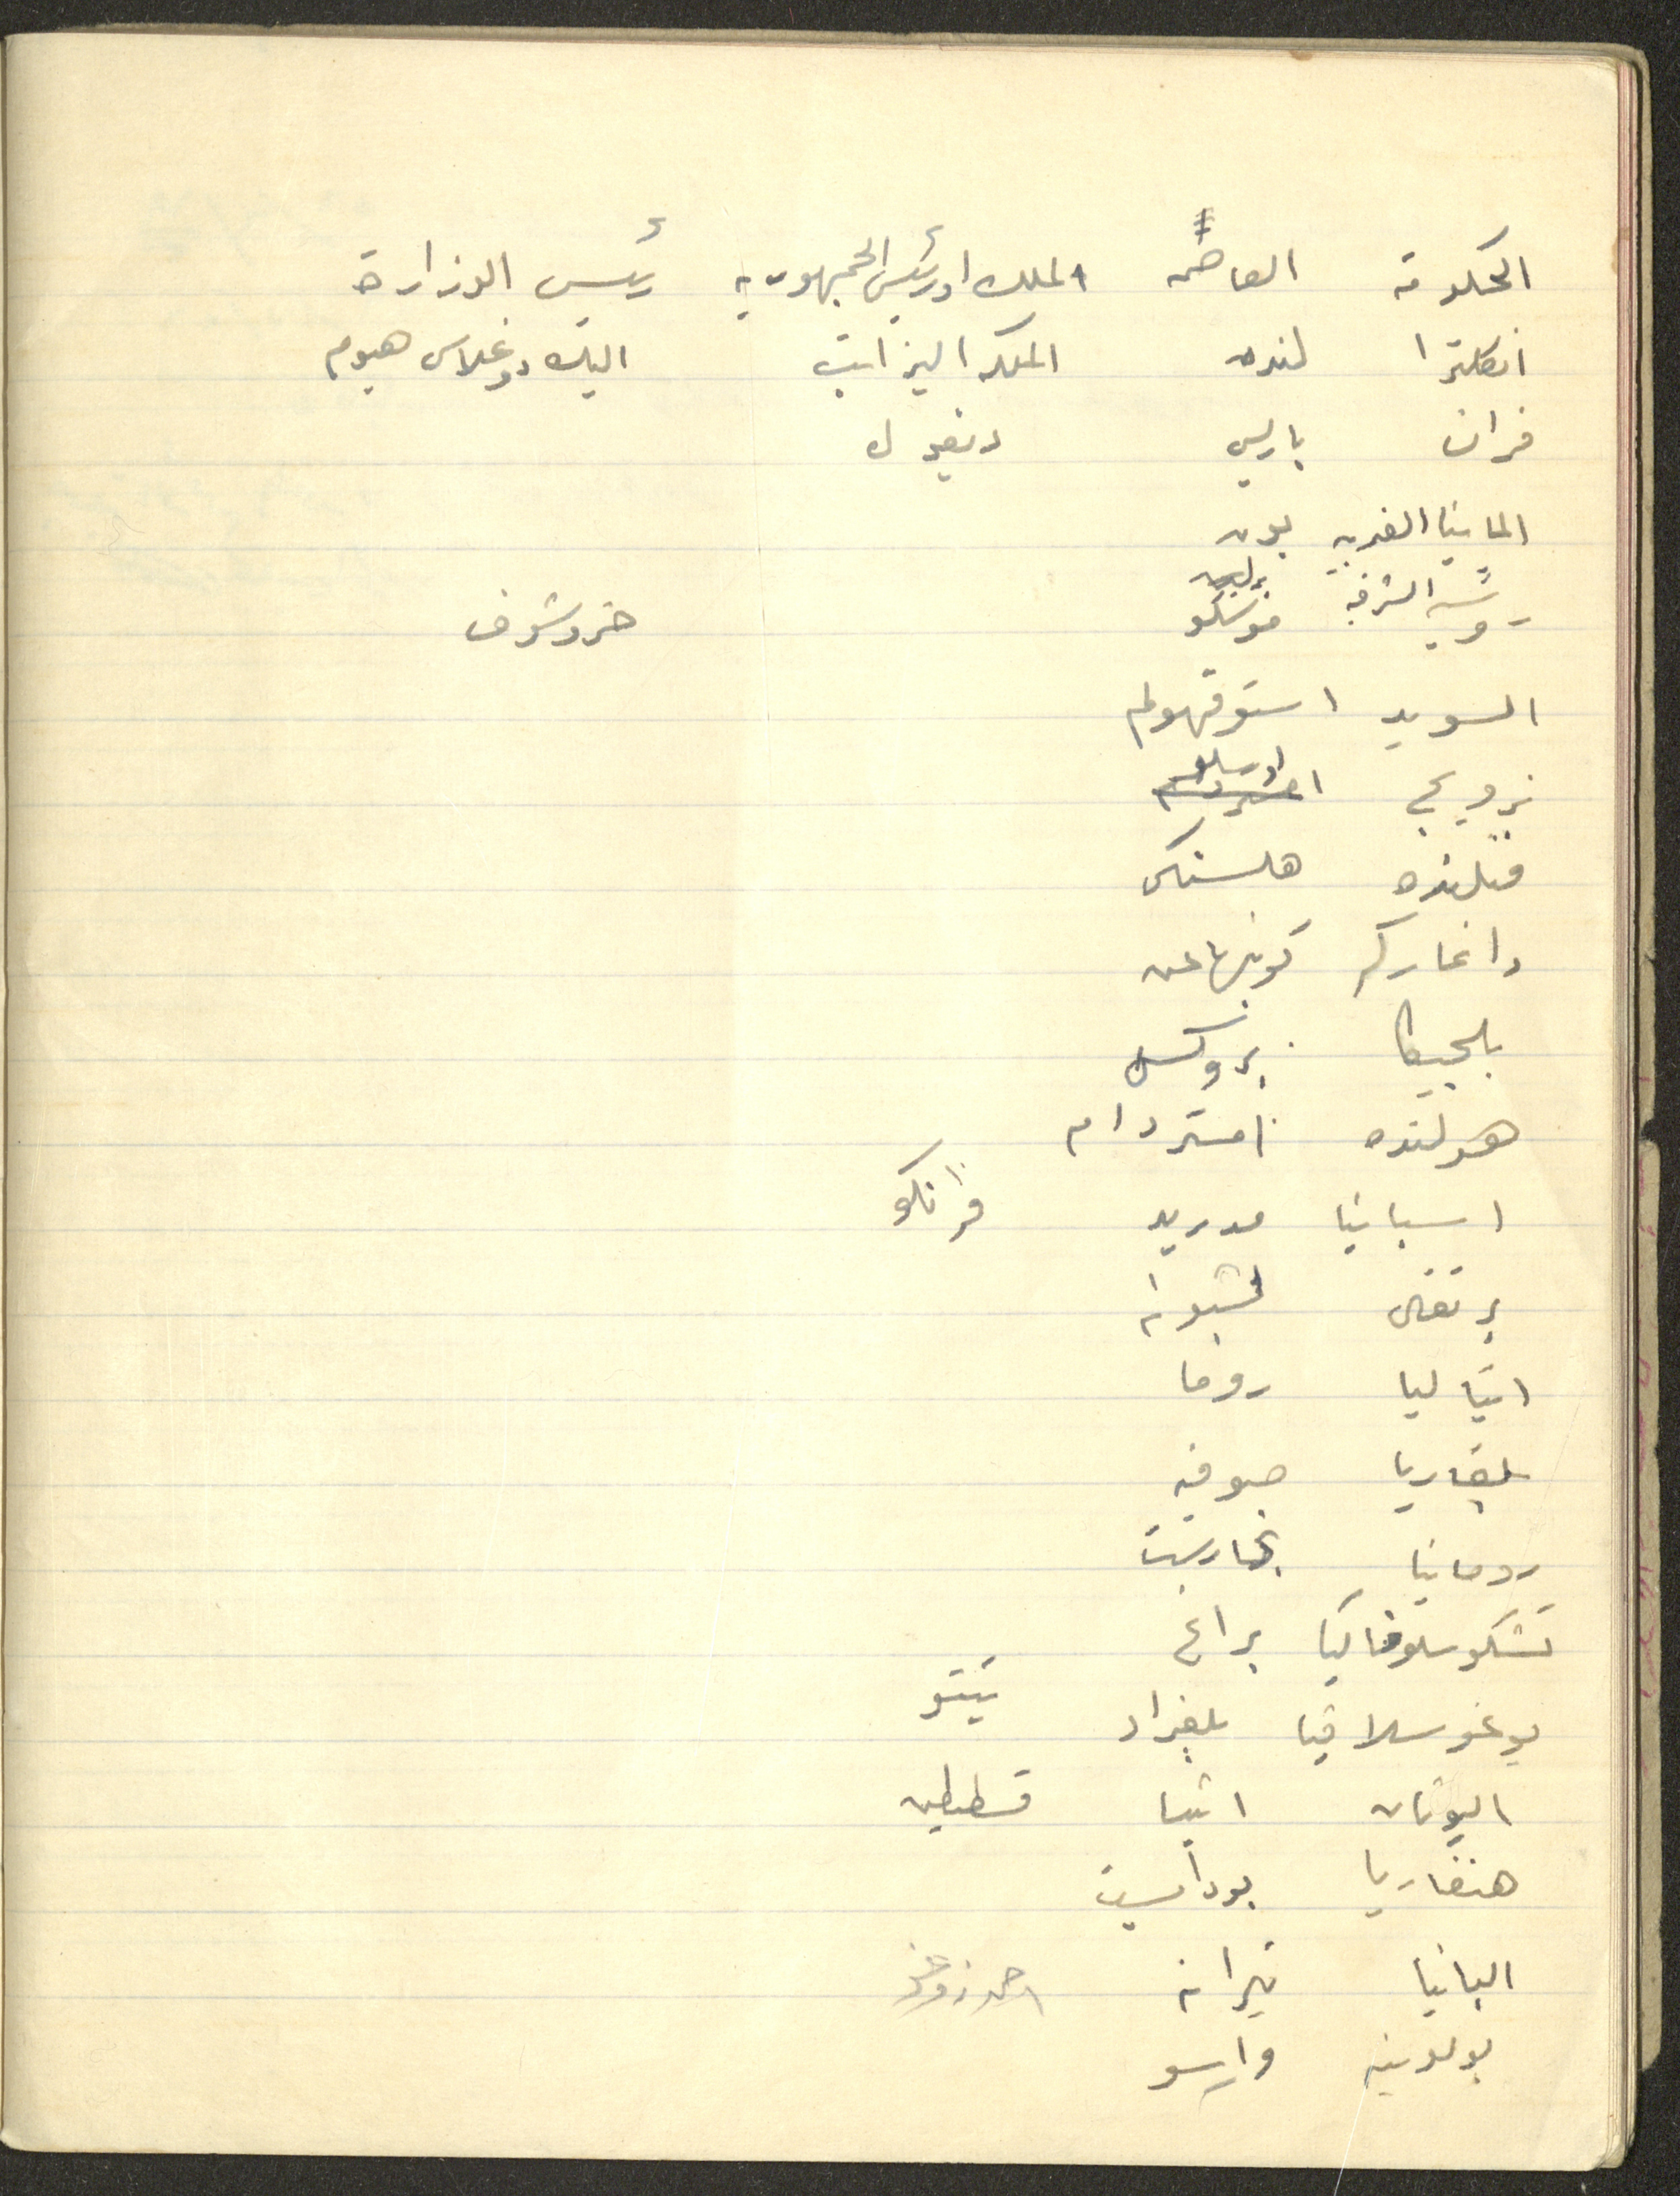 الحكومة العاصمه الملك او رئيس الجمهوريه رئيس الوزارة
انكلترا لندن الملكه اليزابت اليك دوغلاس هيوم
فرانسا باريس ديغول
المانيا الغربيه بون
الشرقيه برلين
روسيه موسكو خروشوف
السويد استوقهولم
نرويج اوسلو
فنلنده هلسنكى
دانماركه كوبنهاغن
بلجيكا بروكسل
هولنده امستردام
اسبانيا مدريد فرانكو
برتغال لشبونه
ايتاليا روما
بلغاريا صوفيه
رومانيا بخارست
تشكوسلوفاكيا براغ
يوغوسلافيا بلغراد تيتو
اليونان اثينا قسطنطين
هنغاريا بودابست
البانيا تيرانه احمد زوغو
بولونيه وارسو